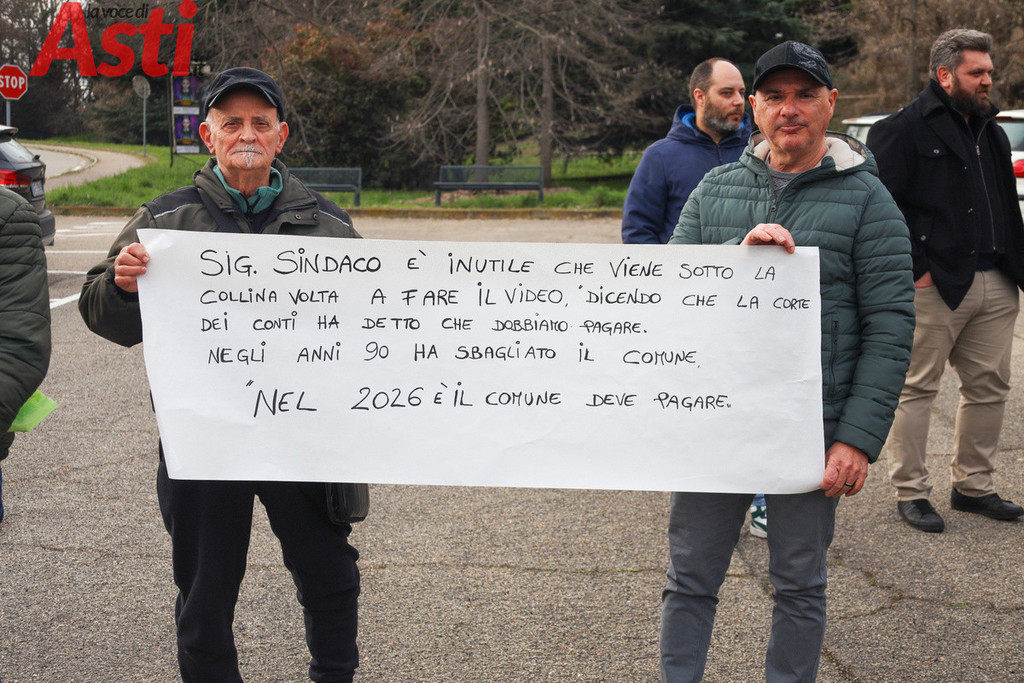 la voce di
Asti
STOP
SIG. SINDACO E' INUTILE CHE VIENE SOTTO LA
COLLINA VOLTA A FARE IL VIDEO, "DICENDO CHE LA CORTE
DEI CONTI HA DETTO CHE DOBBIAMO PAGARE.
NEGLI ANNI 90 HA SBAGLIATO IL COMUNE,
"NEL 2026 È IL COMUNE DEVE PAGARE"